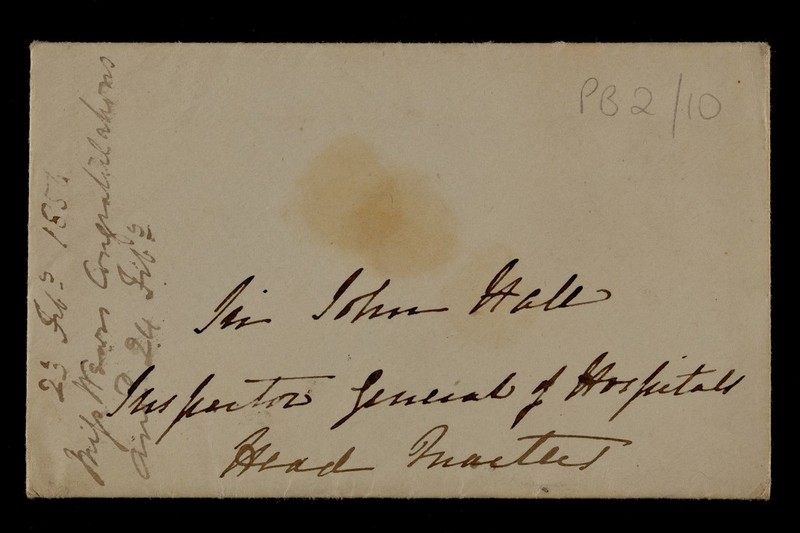 PB2/10
Sir John Hall
Inspector General of Hospitals
Head Quarters
23 Feb
Miss Wears Congratulations
24 Feb